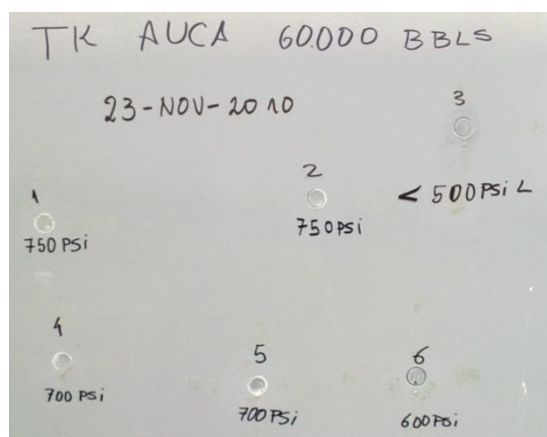 TK AUCA 60.000 BBLS
23-NOV-2010
3
2
< 500 PSi L
1
750 PSi
750 PSi
4
5
6
700 PSi
700 PSi
600 PSi